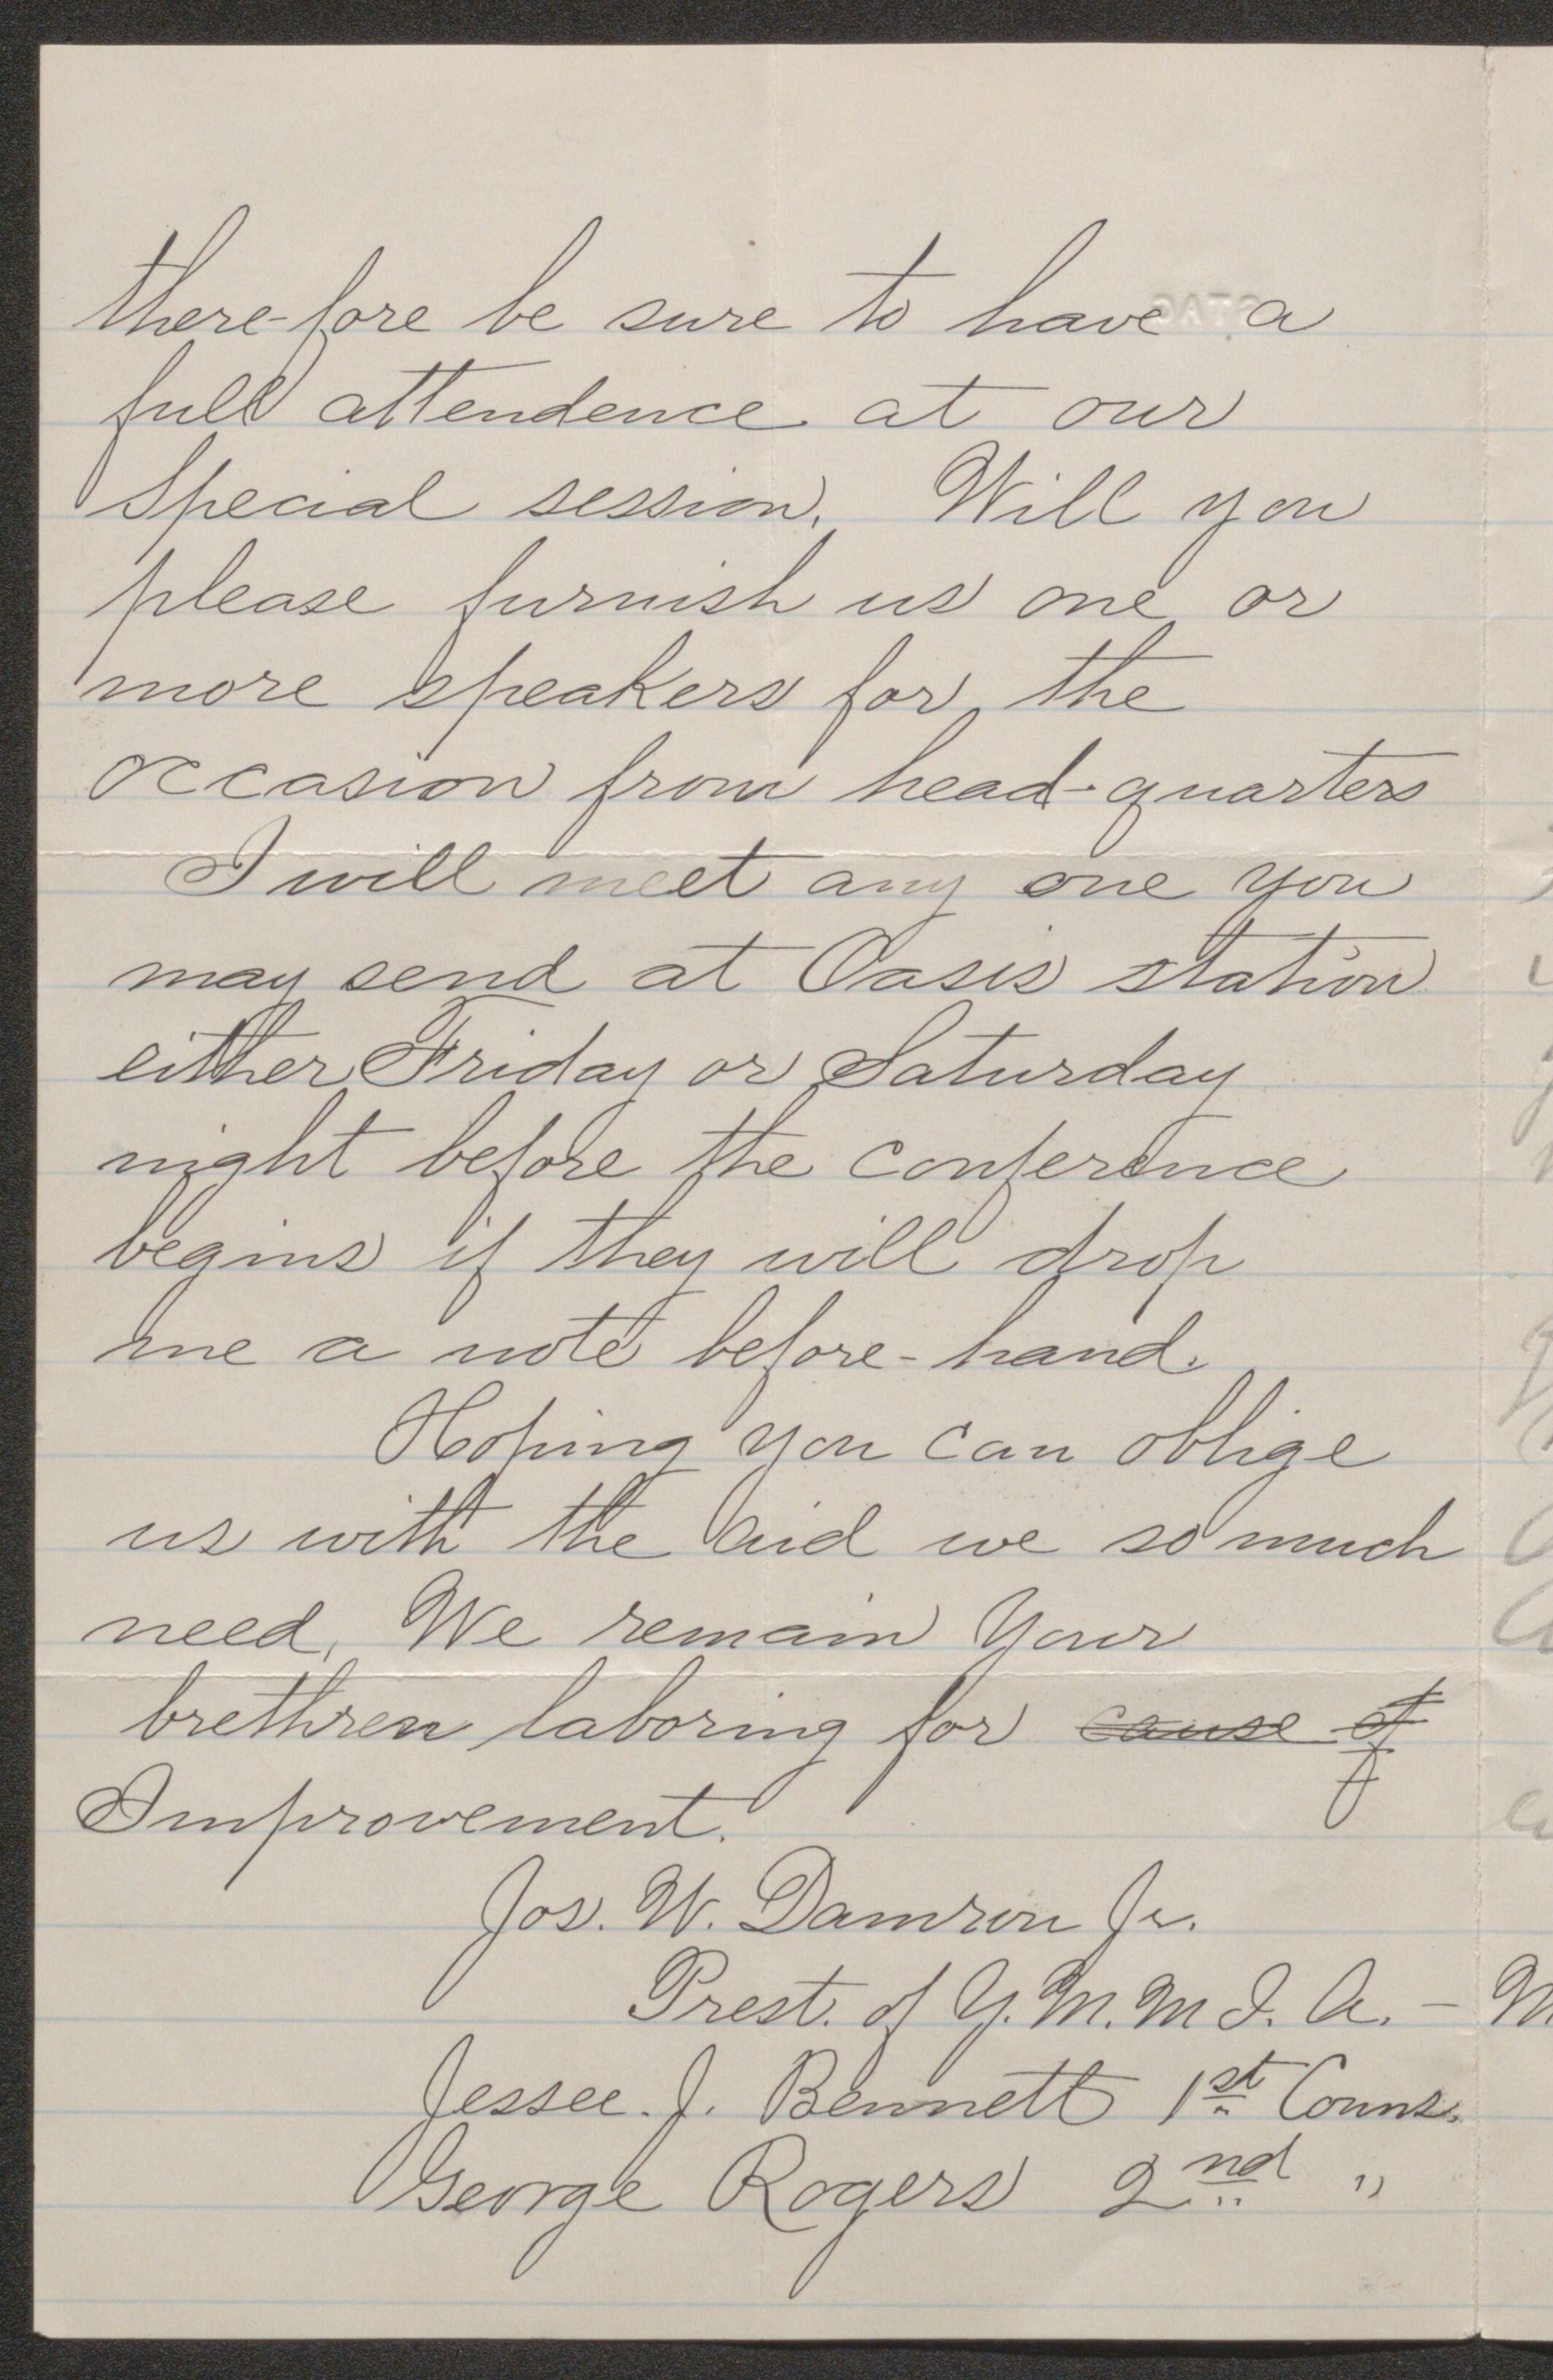 there-fore be sure to have a
full attendence at our
Special session. Will you
please furnish us one or
more speakers for the
occasion from head-quarters
I will meet any one you
may send at Oasis station
either Friday or Saturday
night before the conference
begins if they will drop
me a note before-hand.
Hoping you can oblige
us with the aid we so much
need, We remain Your
brethren laboring for cause of
Improvement.
Jos. W. Damron Jr.
Prest. of Y. M. M I. A. – M
Jessee. J. Bennett 1st Couns.
George Rogers 2nd "